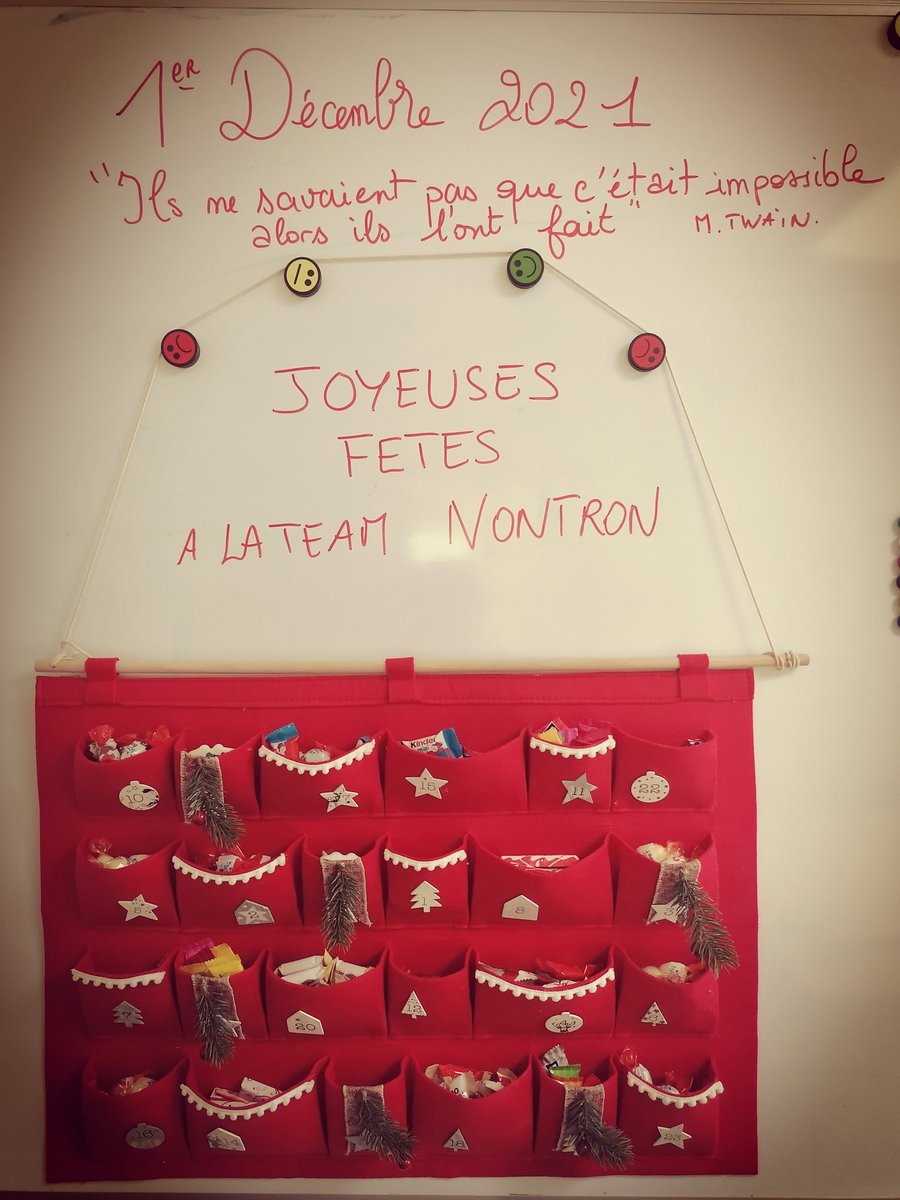 1er Décembre 2021
"Ils ne savaient pas que c'était impossible
alors ils l'ont fait" M. TWAIN.
JOYEUSES
FETES
A LA TEAM NONTRON
10
Kinder
15
11
22
5
2
1
8
7
20
12
16
14
18
23